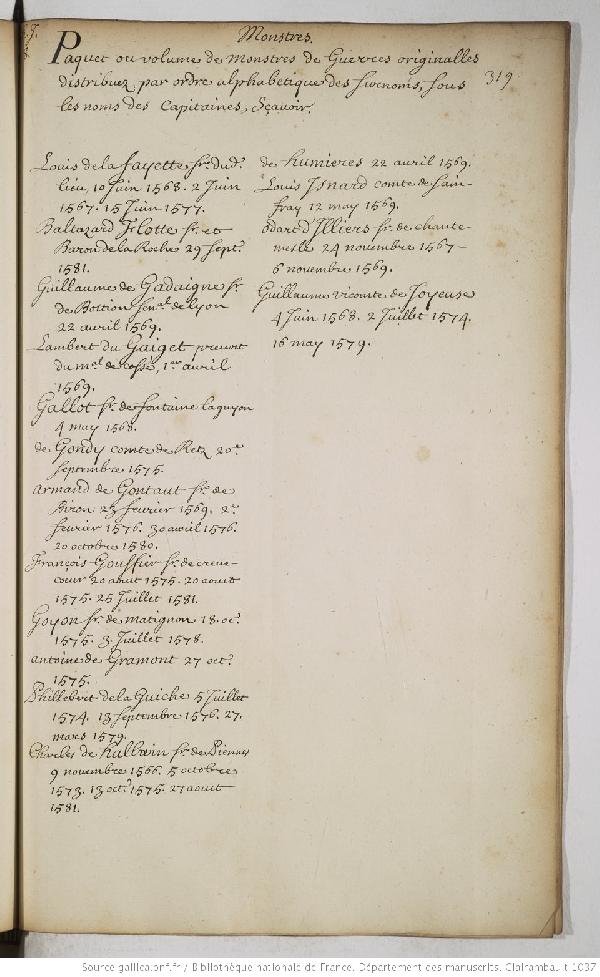 Monstres.
Paquet ou volume de monstres de Guerres originalles
distribuez par ordre alphabetique des surnoms, sous
les noms des Capitaines, sçavoir.
319
Louis de la fayette sr. dud.
lieu, 10 Juin 1568. 2 Juin
1567. 15 Juin 1577.
Baltazard Flotte sr. et
Baron de la Roche 29 sept.
1581.
Guillaume de Gadaigne sr
de Bottion sen.al de Lyon
22 avril 1569.
Lambert du Guiget prevost
du m.al de cossé, 1.er avril
1569.
Gallot sr. de fontaine laguyon
4 may 1568.
de Gondy comte de Retz 20.e
septembre 1575.
armand de Gontaut sr. de
Biron 23 fevrier 1569. 2.e
fevrier 1576. 30 avril 1576.
20 octobre 1580.
François Gouffier sr. de creve-
coeur 20 aout 1575. 20 aoust
1575. 25 Juillet 1581.
Goyon sr. de matignon 18. oc.
1575. 3. Juillet 1578.
antoine de Gramont 27 oct.
1575.
Phillebert de la Guiche 5 Juillet
1574. 13 septembre 1576. 27.
mars 1579.
Charles de halluin sr. de Piennes
9 novembre 1566. 5 octobre
1573. 13 oct. 1575. 27 aoust
1581.
de humieres 22 avril 1569.
Louis Isnard comte de sain-
fray 12 may 1569.
odard d'Illiers sr. de chante-
mesle 24 novembre 1567-
6 novembre 1569.
Guillaume vicomte de Joyeuse
4 Juin 1568. 2 Juillet 1574.
16 may 1579.
Source gallica.bnf.fr / Bibliothèque nationale de France. Département des manuscrits. Clairambault 1037